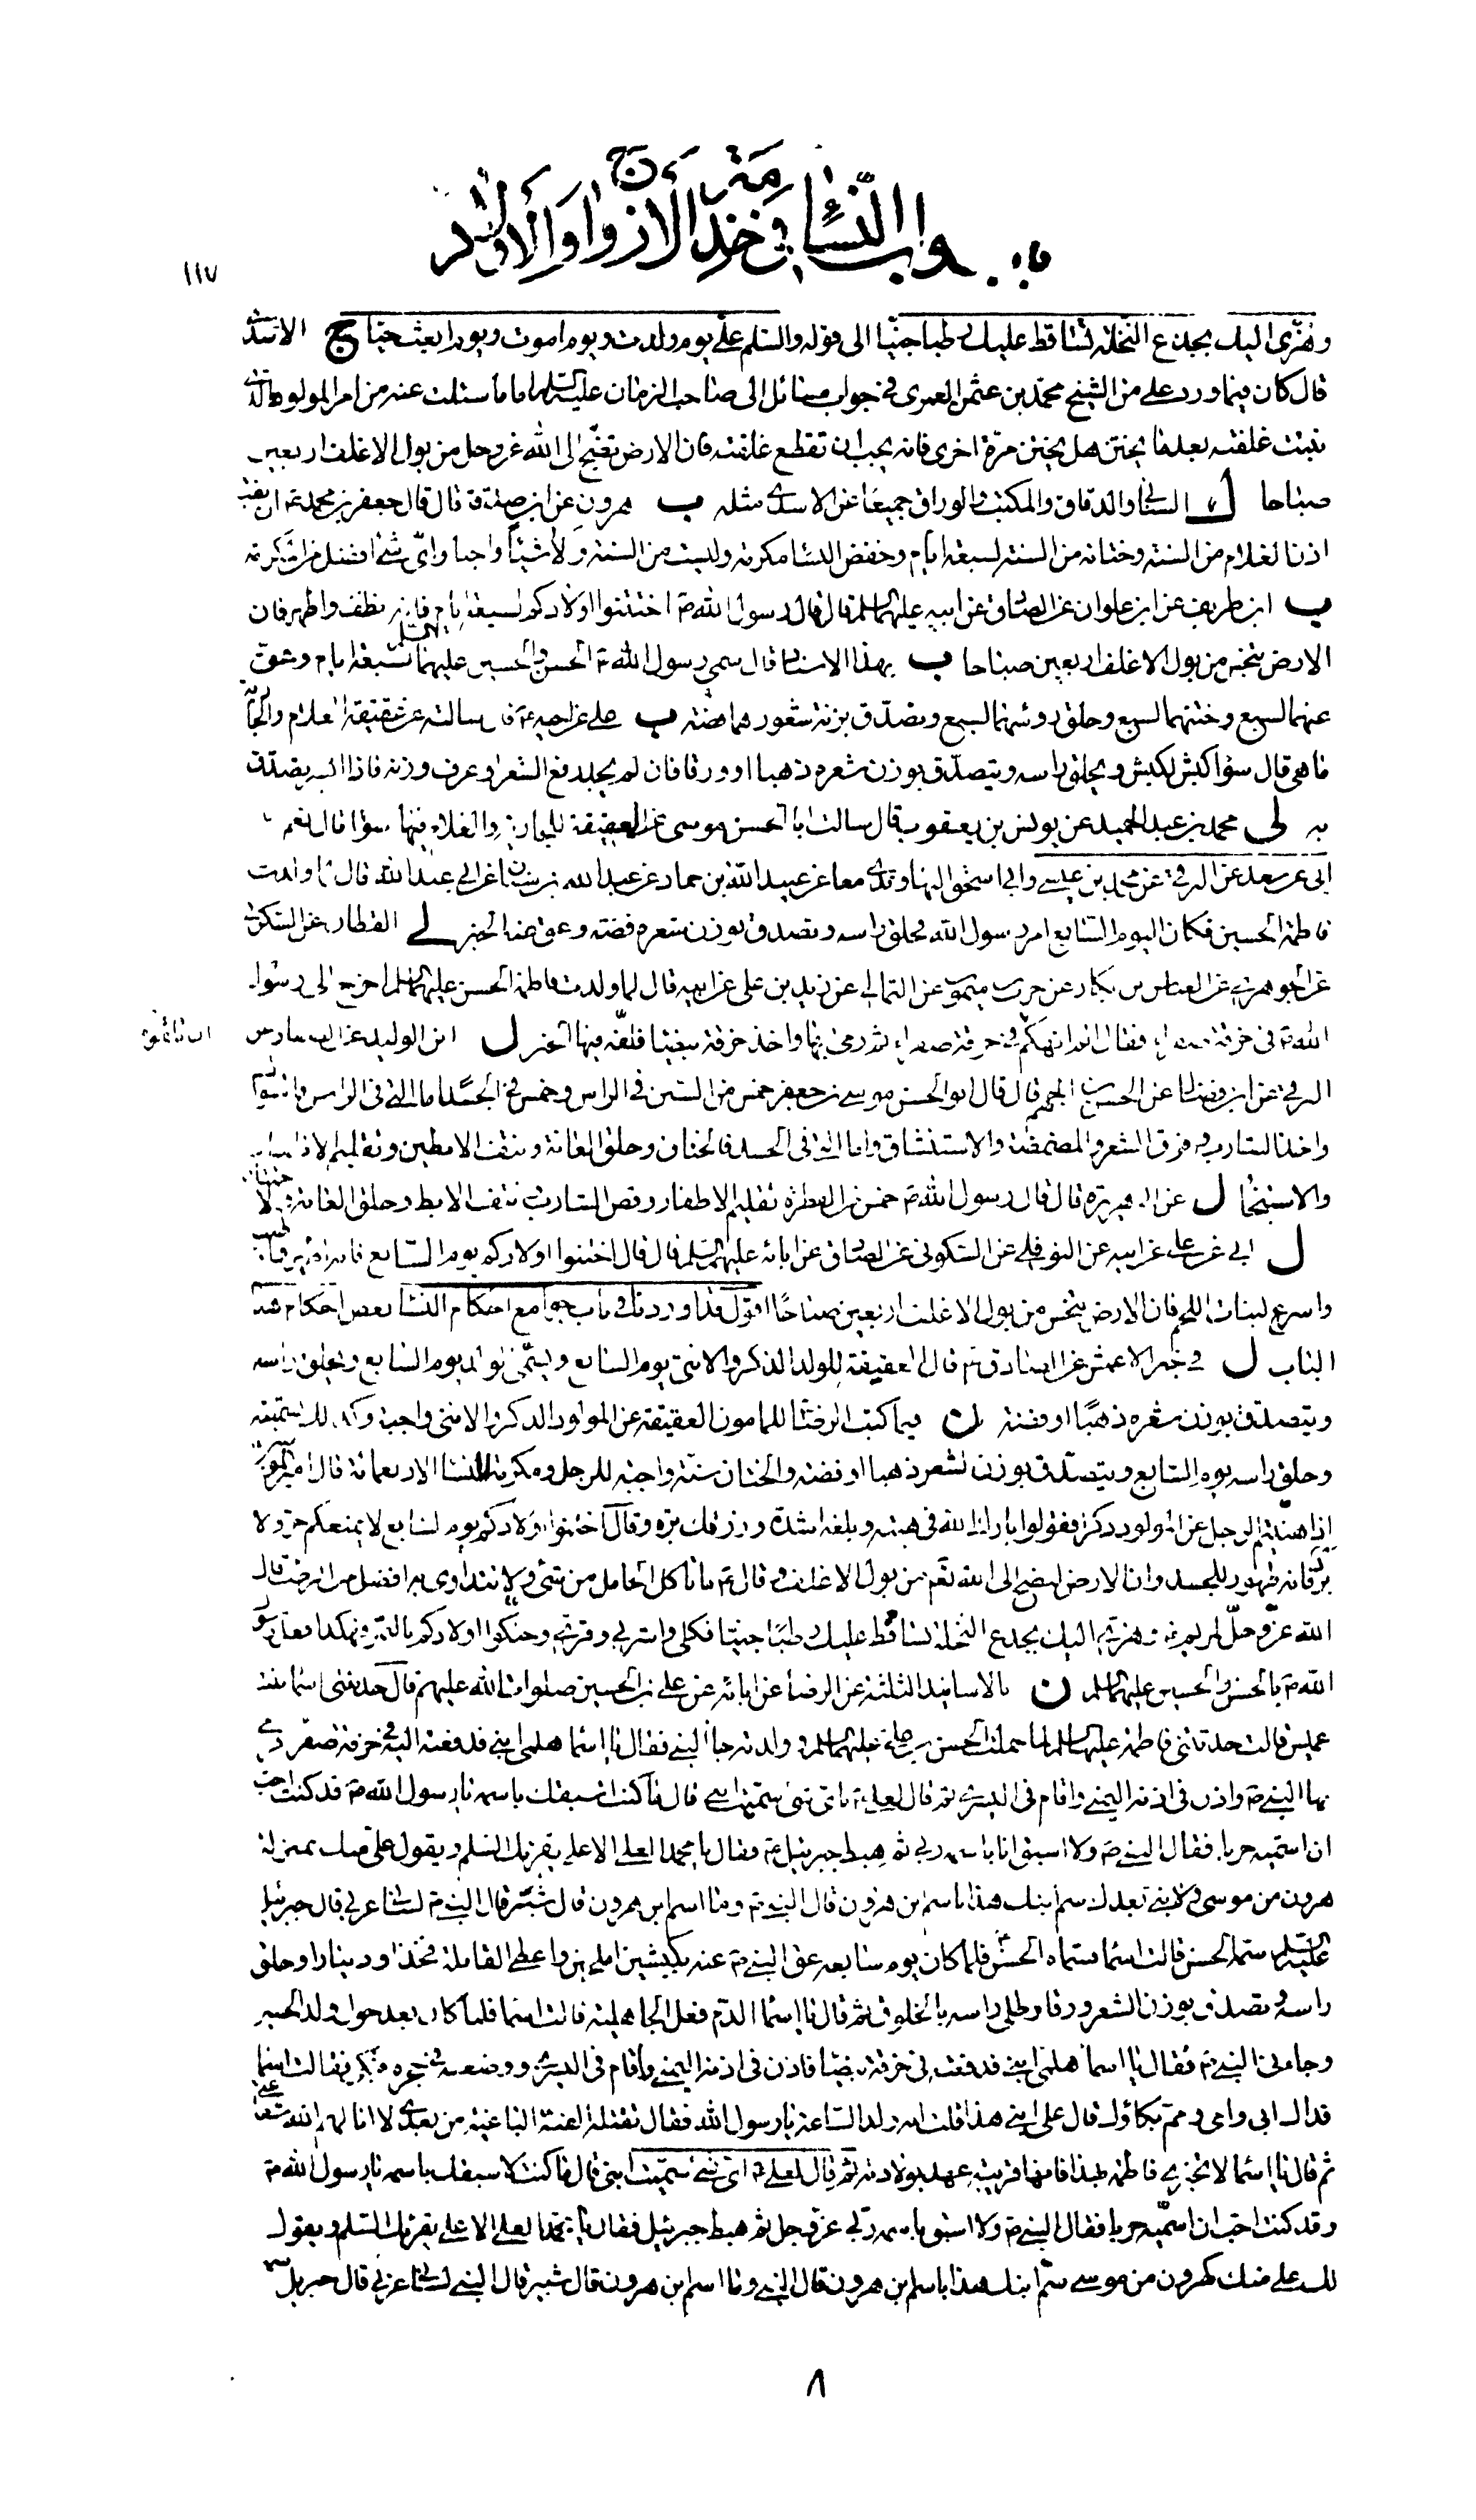 ١١٧
وهزى اليك بجذع النخلة تساقط عليك رطبا جنيا الى قوله والسلم على يوم ولدت ويوم اموت ويوم ابعث حيا ج الاسدى
قال كان فيما ورد على من الشيخ محمد بن عثمن العمرى فى جواب مسائل الى صاحب الزمان عليه السلم اما ما سئلت عنه من امر المولود الذى
تنبت غلفته بعد ما يختن هل يختن مرة اخرى فانه يجب ان تقطع غلفته فان الارض تضج الى الله عز وجل من بول الاغلف اربعين
صباحا ك السنانى والدقاق والمكتب والوراق جميعا عن الاسدى مثله ب هرون عن ابن صدقة قال قال جعفر بن محمد ان ثقب
اذن الغلام من السنة وختانه من السنة لسبعة ايام وخفض النسا مكرمة وليست من السنة ولا شيئا واجبا واى شئ افضل من المكرمة
ب ابن طريف عن ابن علوان عن الصادق عن ابيه عليهما السلم قال قال رسول الله ص اختنوا اولادكم لسبعة ايام فانه نظف واطهر فان
الارض تنجس من بول الاغلف اربعين صباحا ب بهذا الاسناد قال سمى رسول الله ص الحسن والحسين عليهما السلم لسبعة ايام وعق
عنهما لسبع وختنهما لسبع وحلق رؤسهما لسبع وتصدق بزنة شعورهما فضة ب على عن اخيه قال سالته عن عقيقة الغلام والجارية
ما هى قال سوا كبش كبش ويحلق راسه ويتصدق بوزن شعره ذهبا او ورقا فان لم يجد رفع الشعر او عرف وزنه فاذا ايسر يتصدق
به لى محمد بن عبد الحميد عن يونس بن يعقوب قال سالت ابا الحسن موسى عن العقيقة للجارية والغلام فيها سوا قال نعم
ابى عن سعد عن البرقى عن محمد بن عيسى وابى اسحق النهاوندى معا عن عبيد الله بن حماد عن عبد الله بن سنان عن ابى عبد الله قال لما ولدت
فاطمة الحسين فكان اليوم السابع امر رسول الله فحلق راسه وتصدق بوزن شعره فضة وعق عنه الخبر لى القطان عن السكرى
عن الجوهرى عن العباس بن بكار عن حرب بن ميمون عن الثمالى عن زيد بن على عن ابيه قال لما ولدت فاطمة الحسن عليهما السلم اخرج الى رسول
الله ص فى خرقة صفراء فقال الم انهكم فى خرقة صفراء ثم رمى بها واخذ خرقة بيضا فلفه فيها الخبر ل ابن الوليد عن
البرقى عن ابن فضال عن الحسن بن الجهم قال قال ابو الحسن موسى بن جعفر خمس من السنن فى الراس وخمس فى الجسد اما التى فى الراس فالسواك
واخذ الشارب وفرق الشعر والمضمضة والاستنشاق واما التى فى الجسد فالختان وحلق العانة ونتف الابطين وتقليم الاظفار
والاستنجا ل عن ابى هريرة قال قال رسول الله ص خمس من الفطرة تقليم الاظفار وقص الشارب ونتف الابط وحلق العانة والاختتان
ل ابى عن على عن ابيه عن النوفلى عن السكونى عن الصادق عن ابائه عليهم السلم قال قال اختنوا اولادكم يوم السابع فانه اطهر واطيب
واسرع لنبات اللحم فان الارض تنجس من بول الاغلف اربعين صباحا اقول قد اوردنا فى باب جوامع احكام النسا بعض احكام هذا
الباب ل فى خبر الاعمش عن الصادق قال العقيقة للولد الذكر والانثى يوم السابع ويسمى الولد يوم السابع ويحلق راسه
ويتصدق بوزن شعره ذهبا او فضة ن فيما كتب الرضا للمامون العقيقة عن المولود الذكر والانثى واجبة وكذلك تسميته
وحلق راسه يوم السابع ويتصدق بوزن الشعر ذهبا او فضة والختان سنة واجبة للرجل ومكرمة للنسا ل الاربعمائة قال امير المؤمنين
اذا هنيتم الرجل عن مولود ذكر فقولوا بارك الله فى هبته وبلغه اشده ورزقك بره وقال اختنوا اولادكم يوم السابع لا يمنعكم حر ولا
برد فانه طهور للجسد وان الارض لتضج الى الله تعم من بول الاغلف وقال ما تاكل الحامل من شئ ولا تتداوى به افضل من الرطب قال
الله عز وجل لمريم وهزى اليك بجذع النخلة تساقط عليك رطبا جنيا فكلى واشربى وقرى وحنكوا اولادكم بالتمر فهكذا فعل رسول
الله ص بالحسن والحسين عليهما السلم ن بالاسانيد الثلثة عن الرضا عن ابائه عن على بن الحسين صلوات الله عليهم قال حدثتنى اسما بنت
عميس قالت حدثتنى فاطمة عليها السلم لما حملت بالحسن بن على عليهما السلم وولدته جا النبى فقال يا اسما هلمى ابنى فدفعته اليه فى خرقة صفرا فرمى
بها النبى ص واذن فى اذنه اليمنى واقام فى اليسرى ثم قال لعلى باى شئ سميت ابنى قال ما كنت اسبقك باسمه يا رسول الله ص قد كنت احب
ان اسميه حربا فقال النبى ص ولا اسبق انا باسمه ربى ثم هبط جبرئيل فقال يا محمد العلى الاعلى يقرئك السلم ويقول على منك بمنزلة
هرون من موسى ولا نبى بعدك سم ابنك هذا باسم ابن هرون قال النبى ص وما اسم ابن هرون قال شبر قال النبى ص لسانى عربى قال جبرئيل
عليه السلم سمه الحسن قالت اسما فسماه الحسن فلما كان يوم سابعه عق النبى ص عنه بكبشين املحين واعطى القابلة فخذا ودينارا وحلق
راسه وتصدق بوزن الشعر ورقا وطلى راسه بالخلوق ثم قال يا اسما الدم فعل الجاهلية قالت اسما فلما كان بعد حول ولد الحسين
وجاءنى النبى ص فقال يا اسما هلمى ابنى فدفعته فى خرقة بيضا فاذن فى اذنه اليمنى واقام فى اليسرى ووضعه فى حجره فبكى فقالت اسما
فداك ابى وامى ومم بكاؤك قال على ابنى هذا قلت انه ولد الساعة يا رسول الله فقال تقتله الفئة الباغية من بعدى لا انالهم الله شفاعتى
ثم قال يا اسما لا تخبرى فاطمة بهذا فانها قريبة عهد بولادته ثم قال لعلى اى شئ سميت ابنى قال ما كنت لاسبقك باسمه يا رسول الله ص
وقد كنت احب ان اسميه حربا فقال النبى ص ولا اسبق باسمه ربى عز وجل ثم هبط جبرئيل فقال يا محمد العلى الاعلى يقرئك السلم ويقول
لك على منك كهرون من موسى سم ابنك هذا باسم ابن هرون قال النبى وما اسم ابن هرون قال شبير قال النبى لسانى عربى قال جبريل
٨